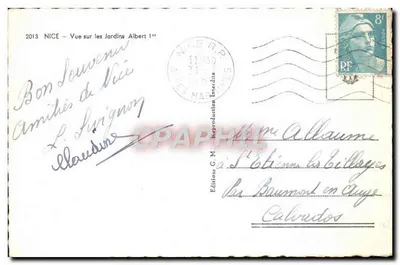 2013 NICE — Vue sur les Jardins Albert 1er
Bon Souvenir
Amitiés de Nice
Claudine
Editions G. M. Reproduction Interdite
NICE R.P.
8F
RF
Mme Allaume
à St Etienne les Tillayes
Par Beaumont en Auge
Calvados